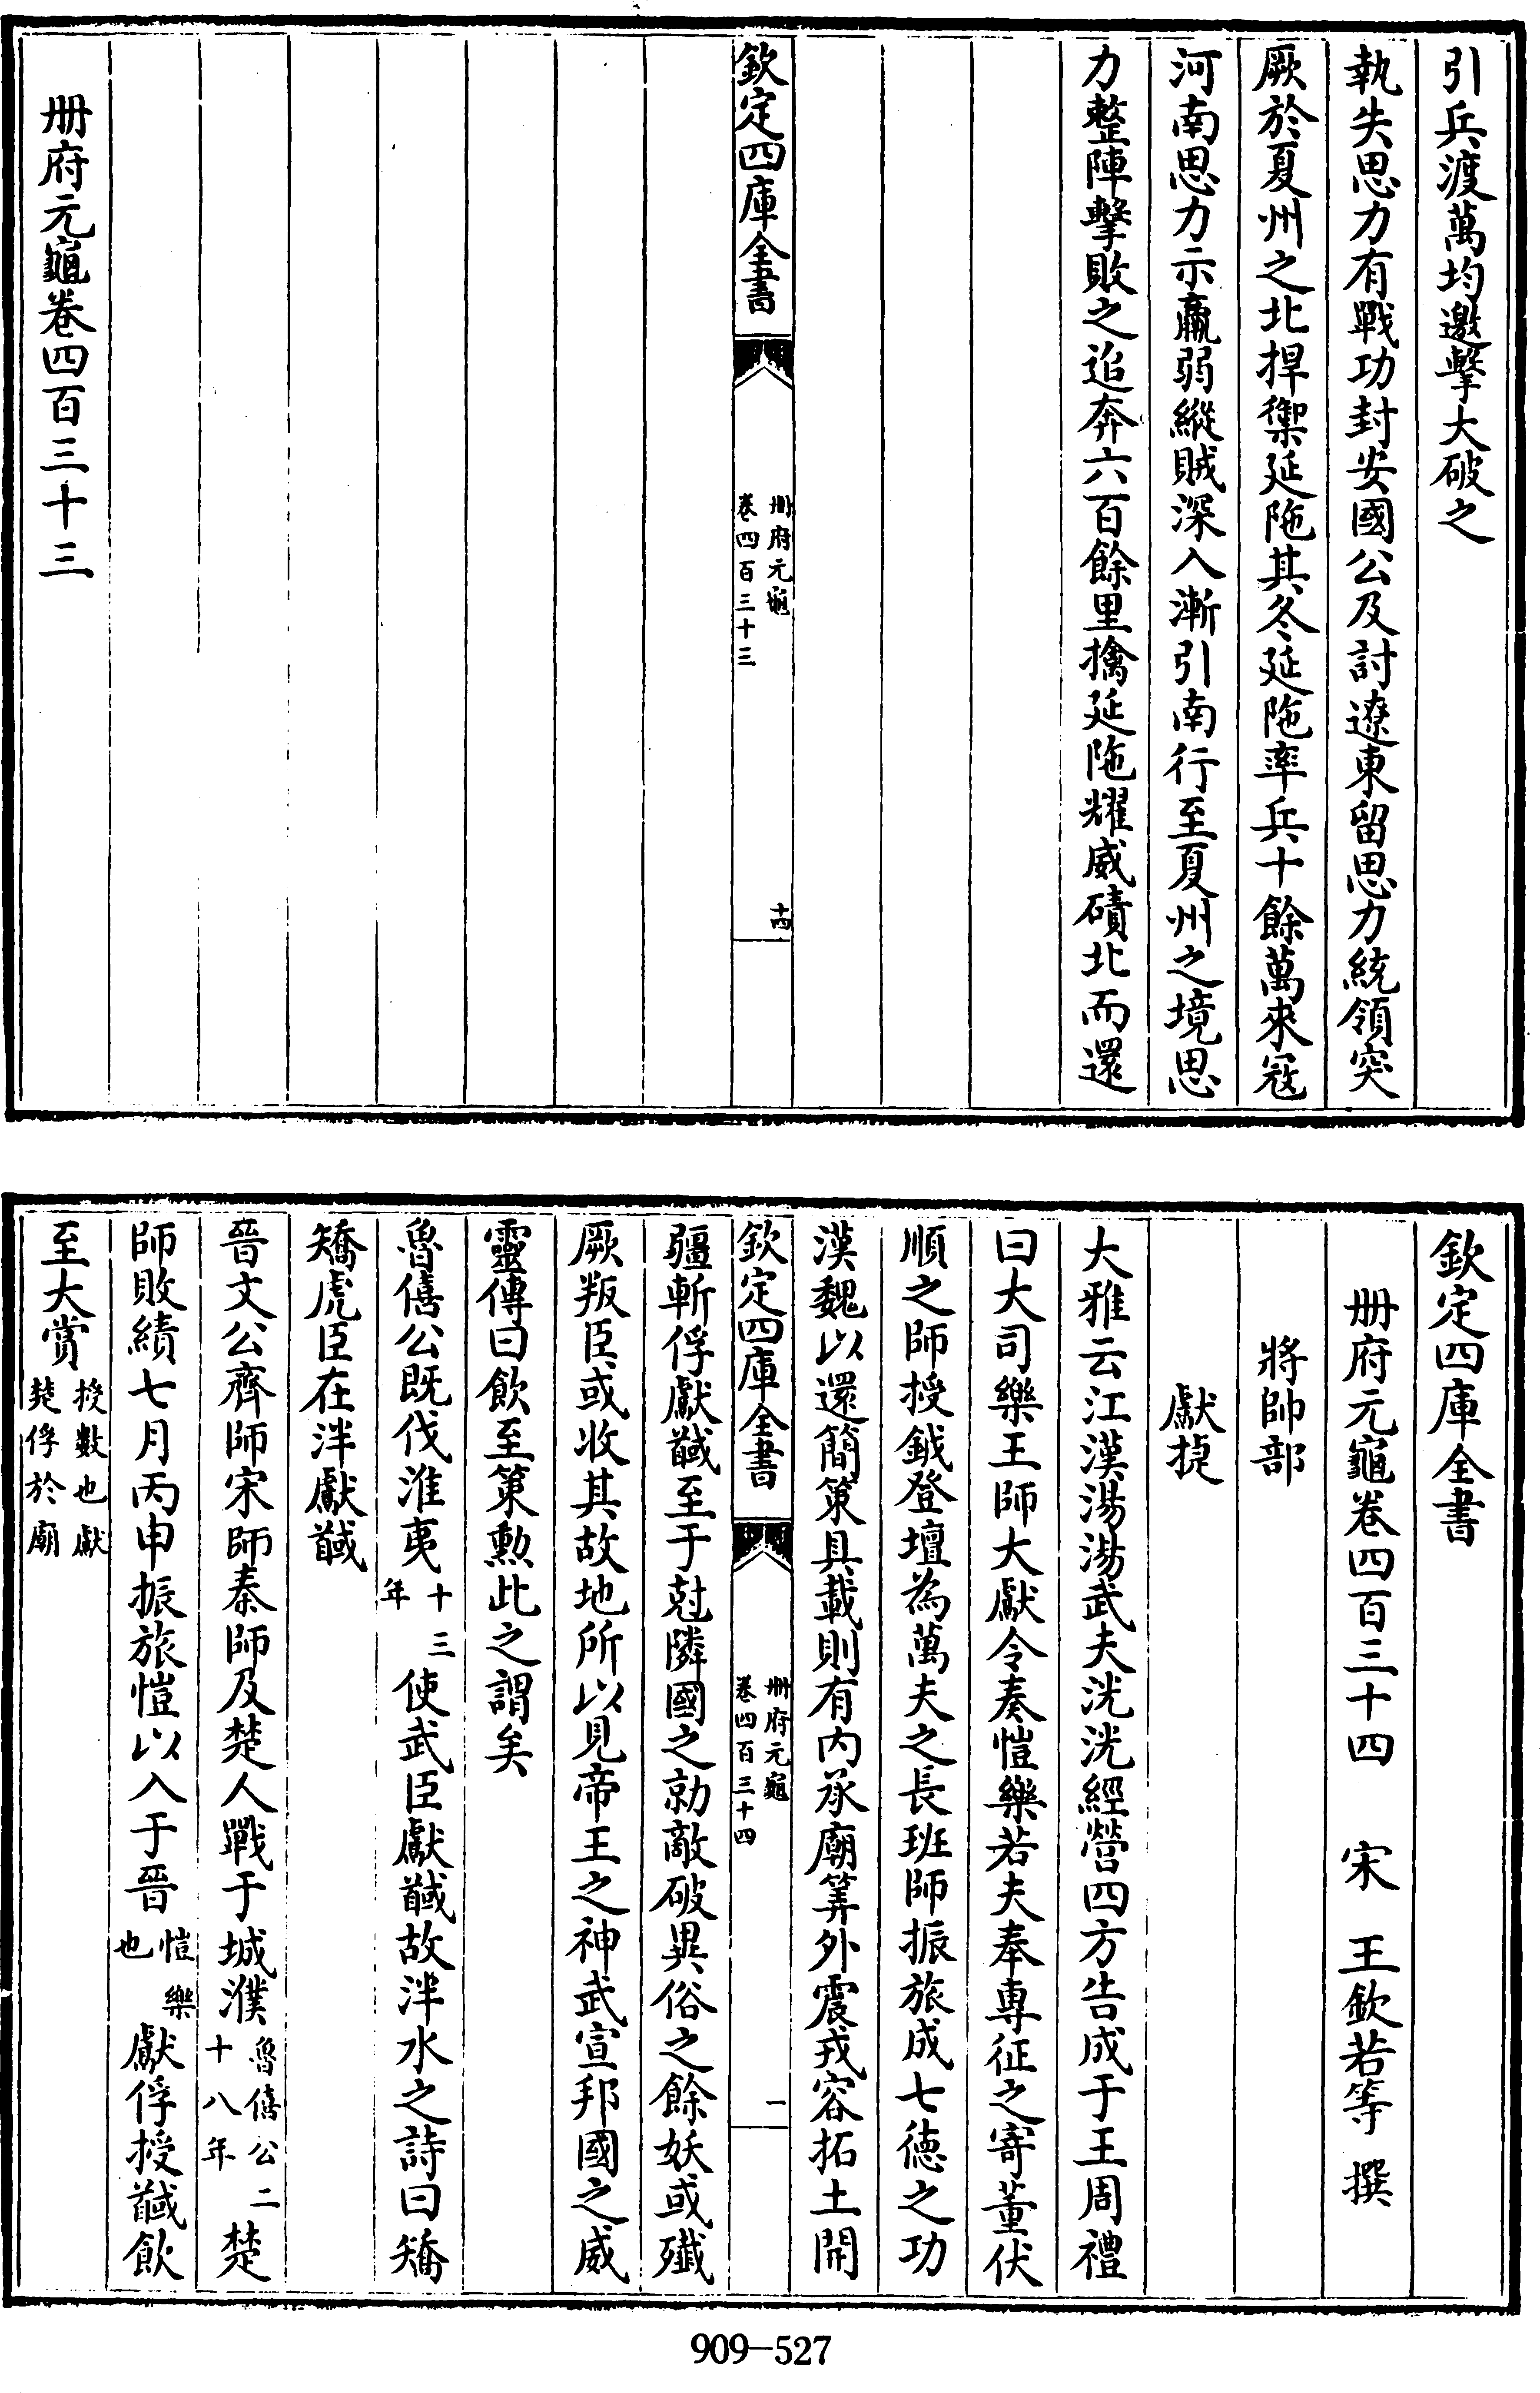 引兵渡萬均邀擊大破之
執失思力有戰功封安國公及討遼東留思力統領突
厥於夏州之北捍禦延陁其冬延陁率兵十餘萬來寇
河南思力示羸弱縱賊深入漸引南行至夏州之境思
力整陣擊敗之追奔六百餘里擒延陁耀威磧北而還
欽定四庫全書
冊府元龜
卷四百三十三
十四
冊府元龜卷四百三十三
欽定四庫全書
冊府元龜卷四百三十四 宋 王欽若等 撰
將帥部
獻捷
大雅云江漢湯湯武夫洸洸經營四方告成于王周禮
曰大司樂王師大獻令奏愷樂若夫奉專征之寄董伏
順之師授鉞登壇為萬夫之長班師振旅成七德之功
漢魏以還簡策具載則有内承廟筭外震戎容拓土開
欽定四庫全書
冊府元龜
卷四百三十四
一
疆斬俘獻馘至于尅隣國之勍敵破異俗之餘妖或殱
厥叛臣或收其故地所以見帝王之神武宣邦國之威
靈傳曰飲至策勲此之謂矣
魯僖公既伐淮夷十三年使武臣獻馘故泮水之詩曰矯
矯虎臣在泮獻馘
晉文公齊師宋師秦師及楚人戰于城濮魯僖公二十八年楚
師敗績七月丙申振旅愷以入于晉愷樂也獻俘授馘飲
至大賞授數也獻楚俘於廟
909-527